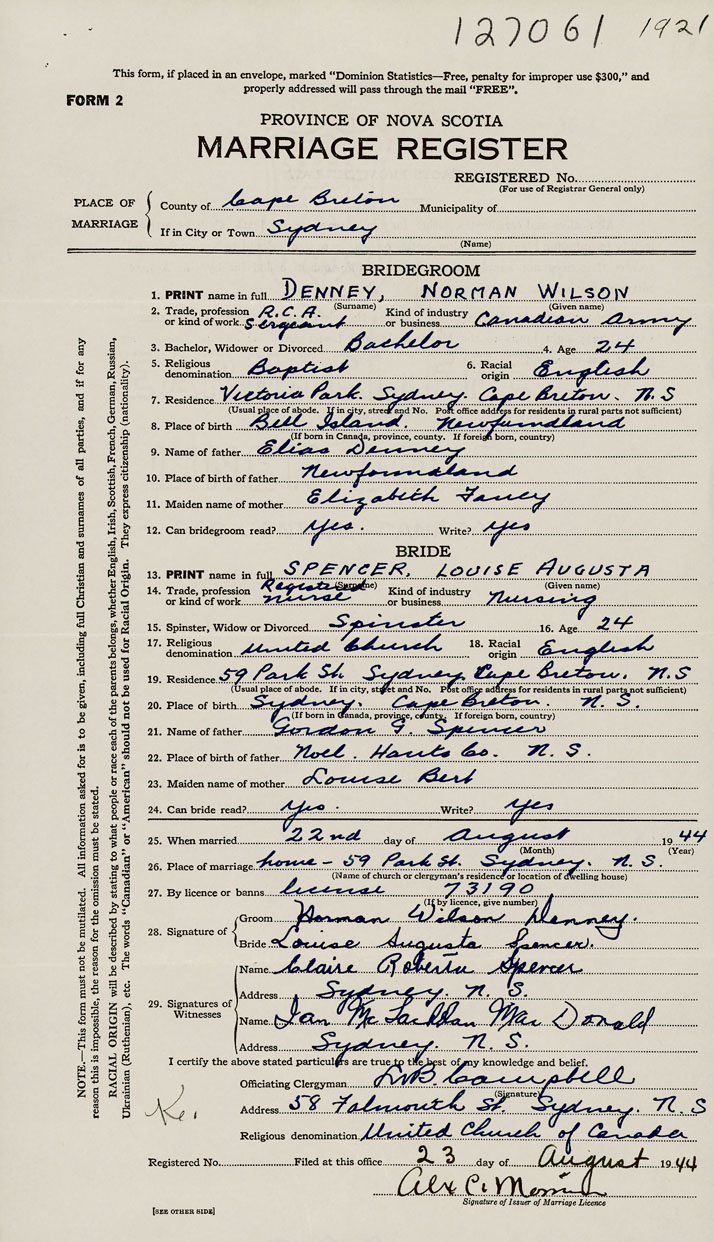 127061 1921
This form, if placed in an envelope, marked "Dominion Statistics—Free, penalty for improper use $300," and
properly addressed will pass through the mail "FREE".
FORM 2
PROVINCE OF NOVA SCOTIA
MARRIAGE REGISTER
REGISTERED No.
(For use of Registrar General only)
PLACE OF MARRIAGE
County of Cape Breton Municipality of
If in City or Town Sydney
(Name)
BRIDEGROOM
1. PRINT name in full DENNEY, NORMAN WILSON
(Surname) (Given name)
2. Trade, profession or kind of work R.C.A. Sergeant Kind of industry or business Canadian Army
3. Bachelor, Widower or Divorced Bachelor 4. Age 24
5. Religious denomination Baptist 6. Racial origin English
7. Residence Victoria Park. Sydney. Cape Breton. N.S
(Usual place of abode. If in city, street and No. Post office address for residents in rural parts not sufficient)
8. Place of birth Bell Island. Newfoundland
(If born in Canada, province, county. If foreign born, country)
9. Name of father Elias Denney
10. Place of birth of father Newfoundland
11. Maiden name of mother Elizabeth
12. Can bridegroom read? yes. Write? yes
BRIDE
13. PRINT name in full SPENCER, LOUISE AUGUSTA
(Surname) (Given name)
14. Trade, profession or kind of work Registered nurse Kind of industry or business Nursing
15. Spinster, Widow or Divorced Spinster 16. Age 24
17. Religious denomination United Church 18. Racial origin English
19. Residence 59 Park St. Sydney. Cape Breton. N.S
(Usual place of abode. If in city, street and No. Post office address for residents in rural parts not sufficient)
20. Place of birth Sydney. Cape Breton. N. S.
(If born in Canada, province, county. If foreign born, country)
21. Name of father Gordon G. Spencer
22. Place of birth of father Noel. Hants Co. N. S.
23. Maiden name of mother Louise Bert
24. Can bride read? yes. Write? yes
25. When married 22nd day of August 1944
(Month) (Year)
26. Place of marriage home - 59 Park St. Sydney. N. S.
(Name of church or clergyman's residence or location of dwelling house)
27. By licence or banns license 73190
(If by licence, give number)
28. Signature of
Groom Norman Wilson Denney.
Bride Louise Augusta Spencer.
29. Signatures of Witnesses
Name Claire Roberta Spencer
Address Sydney. N. S.
Name Ian McLachlan MacDonald
Address Sydney. N. S.
I certify the above stated particulars are true to the best of my knowledge and belief.
Officiating Clergyman Campbell
(Signature)
Address 58 Falmouth St. Sydney. N. S
Religious denomination United Church of Canada
Registered No. Filed at this office 23 day of August 1944
Alex C.
Signature of Issuer of Marriage Licence
[SEE OTHER SIDE]
NOTE.—This form must not be mutilated. All information asked for is to be given, including full Christian and surnames of all parties, and if for any
reason this is impossible, the reason for the omission must be stated.
RACIAL ORIGIN will be described by stating to what people or race each of the parents belongs, whether English, Irish, Scottish, French, German, Russian,
Ukrainian (Ruthenian), etc. The words "Canadian" or "American" should not be used for Racial Origin. They express citizenship (nationality).